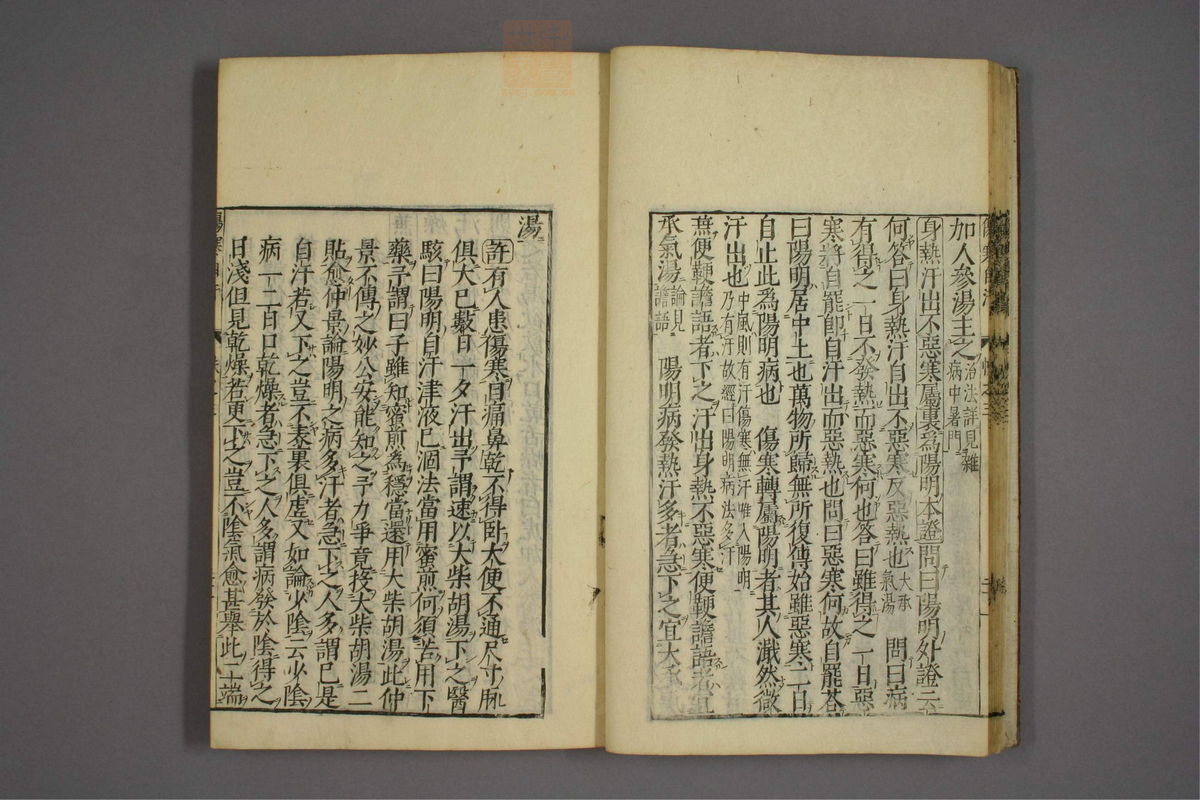 加人參湯主之治法詳見雜病中暑門
身熱汗出不惡寒屬裏為陽明本證問曰陽明外證云
何答曰身熱汗自出不惡寒反惡熱也大承氣湯 問曰病
有得之一日不發熱而惡寒何也答曰雖得之一日惡
寒將自罷即自汗出而惡熱也問曰惡寒何故自罷荅
曰陽明居中土也萬物所歸無所復傳始雖惡寒二日
自止此為陽明病也 傷寒轉屬陽明者其人濈然微
汗出也中風則有汗傷寒無汗唯入陽明乃有汗故經曰陽明病法多汗
無便鞕譫語者下之汗出身熱不惡寒便鞕譫語者
承氣湯論見譫語 陽明病發熱汗多者急下之宜大承
湯
許有人患傷寒目痛鼻乾不得臥大便不通尺寸脈
俱大已數日一夕汗出予謂速以大柴胡湯下之醫
駭曰陽明自汗津液已涸法當用蜜煎何須苦用下
藥予謂曰子雖知蜜煎為穩當還用大柴胡湯此仲
景不傳之妙公安能知之予力爭竟投大柴胡湯二
貼愈仲景論陽明之病多汗者急下之人多謂已是
自汗若又下之豈不表裏俱虛又如論少陰云少陰
病一二日口乾燥者急下之人多謂病發於陰得之
日淺但見乾燥若更下之豈不陰氣愈甚舉此二端